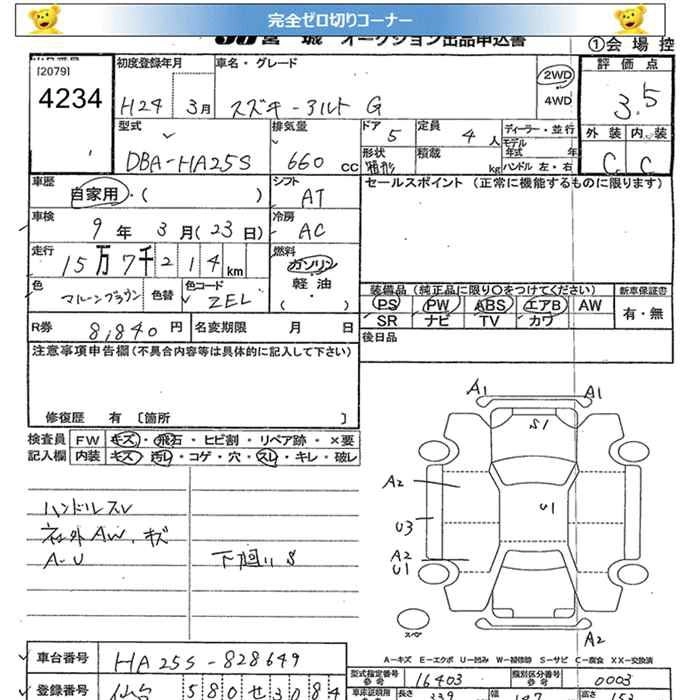 完全ゼロ切りコーナー
宮城 オークション出品申込書
①会場控
[2079]
4234
初度登録年月
H24 3月
車名・グレード
スズキ-アルト G
2WD
4WD
評価点
3.5
外装 内装
C C
型式
DBA-HA25S
排気量
660 cc
ドア 5
定員 4 人
ディーラー・並行
モデル年式 年
形状 箱形
積載 kg
ハンドル 左・右
車歴
自家用・( )
シフト
AT
セールスポイント (正常に機能するものに限ります)
車検
9年 3月(23日)
冷房
AC
走行
15万7千214km
燃料
ガソリン
軽油
( ・ )
色
マルーンブラウン
色替
色コード
ZEL
装備品 (純正品に限り〇をつけてください)
新車保証書
PS PW ABS エアB AW
有・無
SR ナビ TV カワ
R券 8,840円
名変期限 月 日
後日品
注意事項申告欄(不具合内容等は具体的に記入して下さい)
修復歴 有 〔箇所 〕
検査員 FW キズ・飛石・ヒビ割・リペア跡・×要
記入欄 内装 キズ・汚レ・コゲ・穴・スレ・キレ・破レ
ハンドルスレ
社外AW.キズ
A-U
下廻りS
A1 A1
S1
A2
U1
U3
A2
U1
スペア
A2
A-キズ E-エクボ U-凹み W-補修跡 S-サビ C-腐食 XX-交換済
車台番号
HA25S-828649
型式指定番号 参考
16403
類別区分番号 参考
0003
登録番号
仙台 580 せ 3084
長さ 339